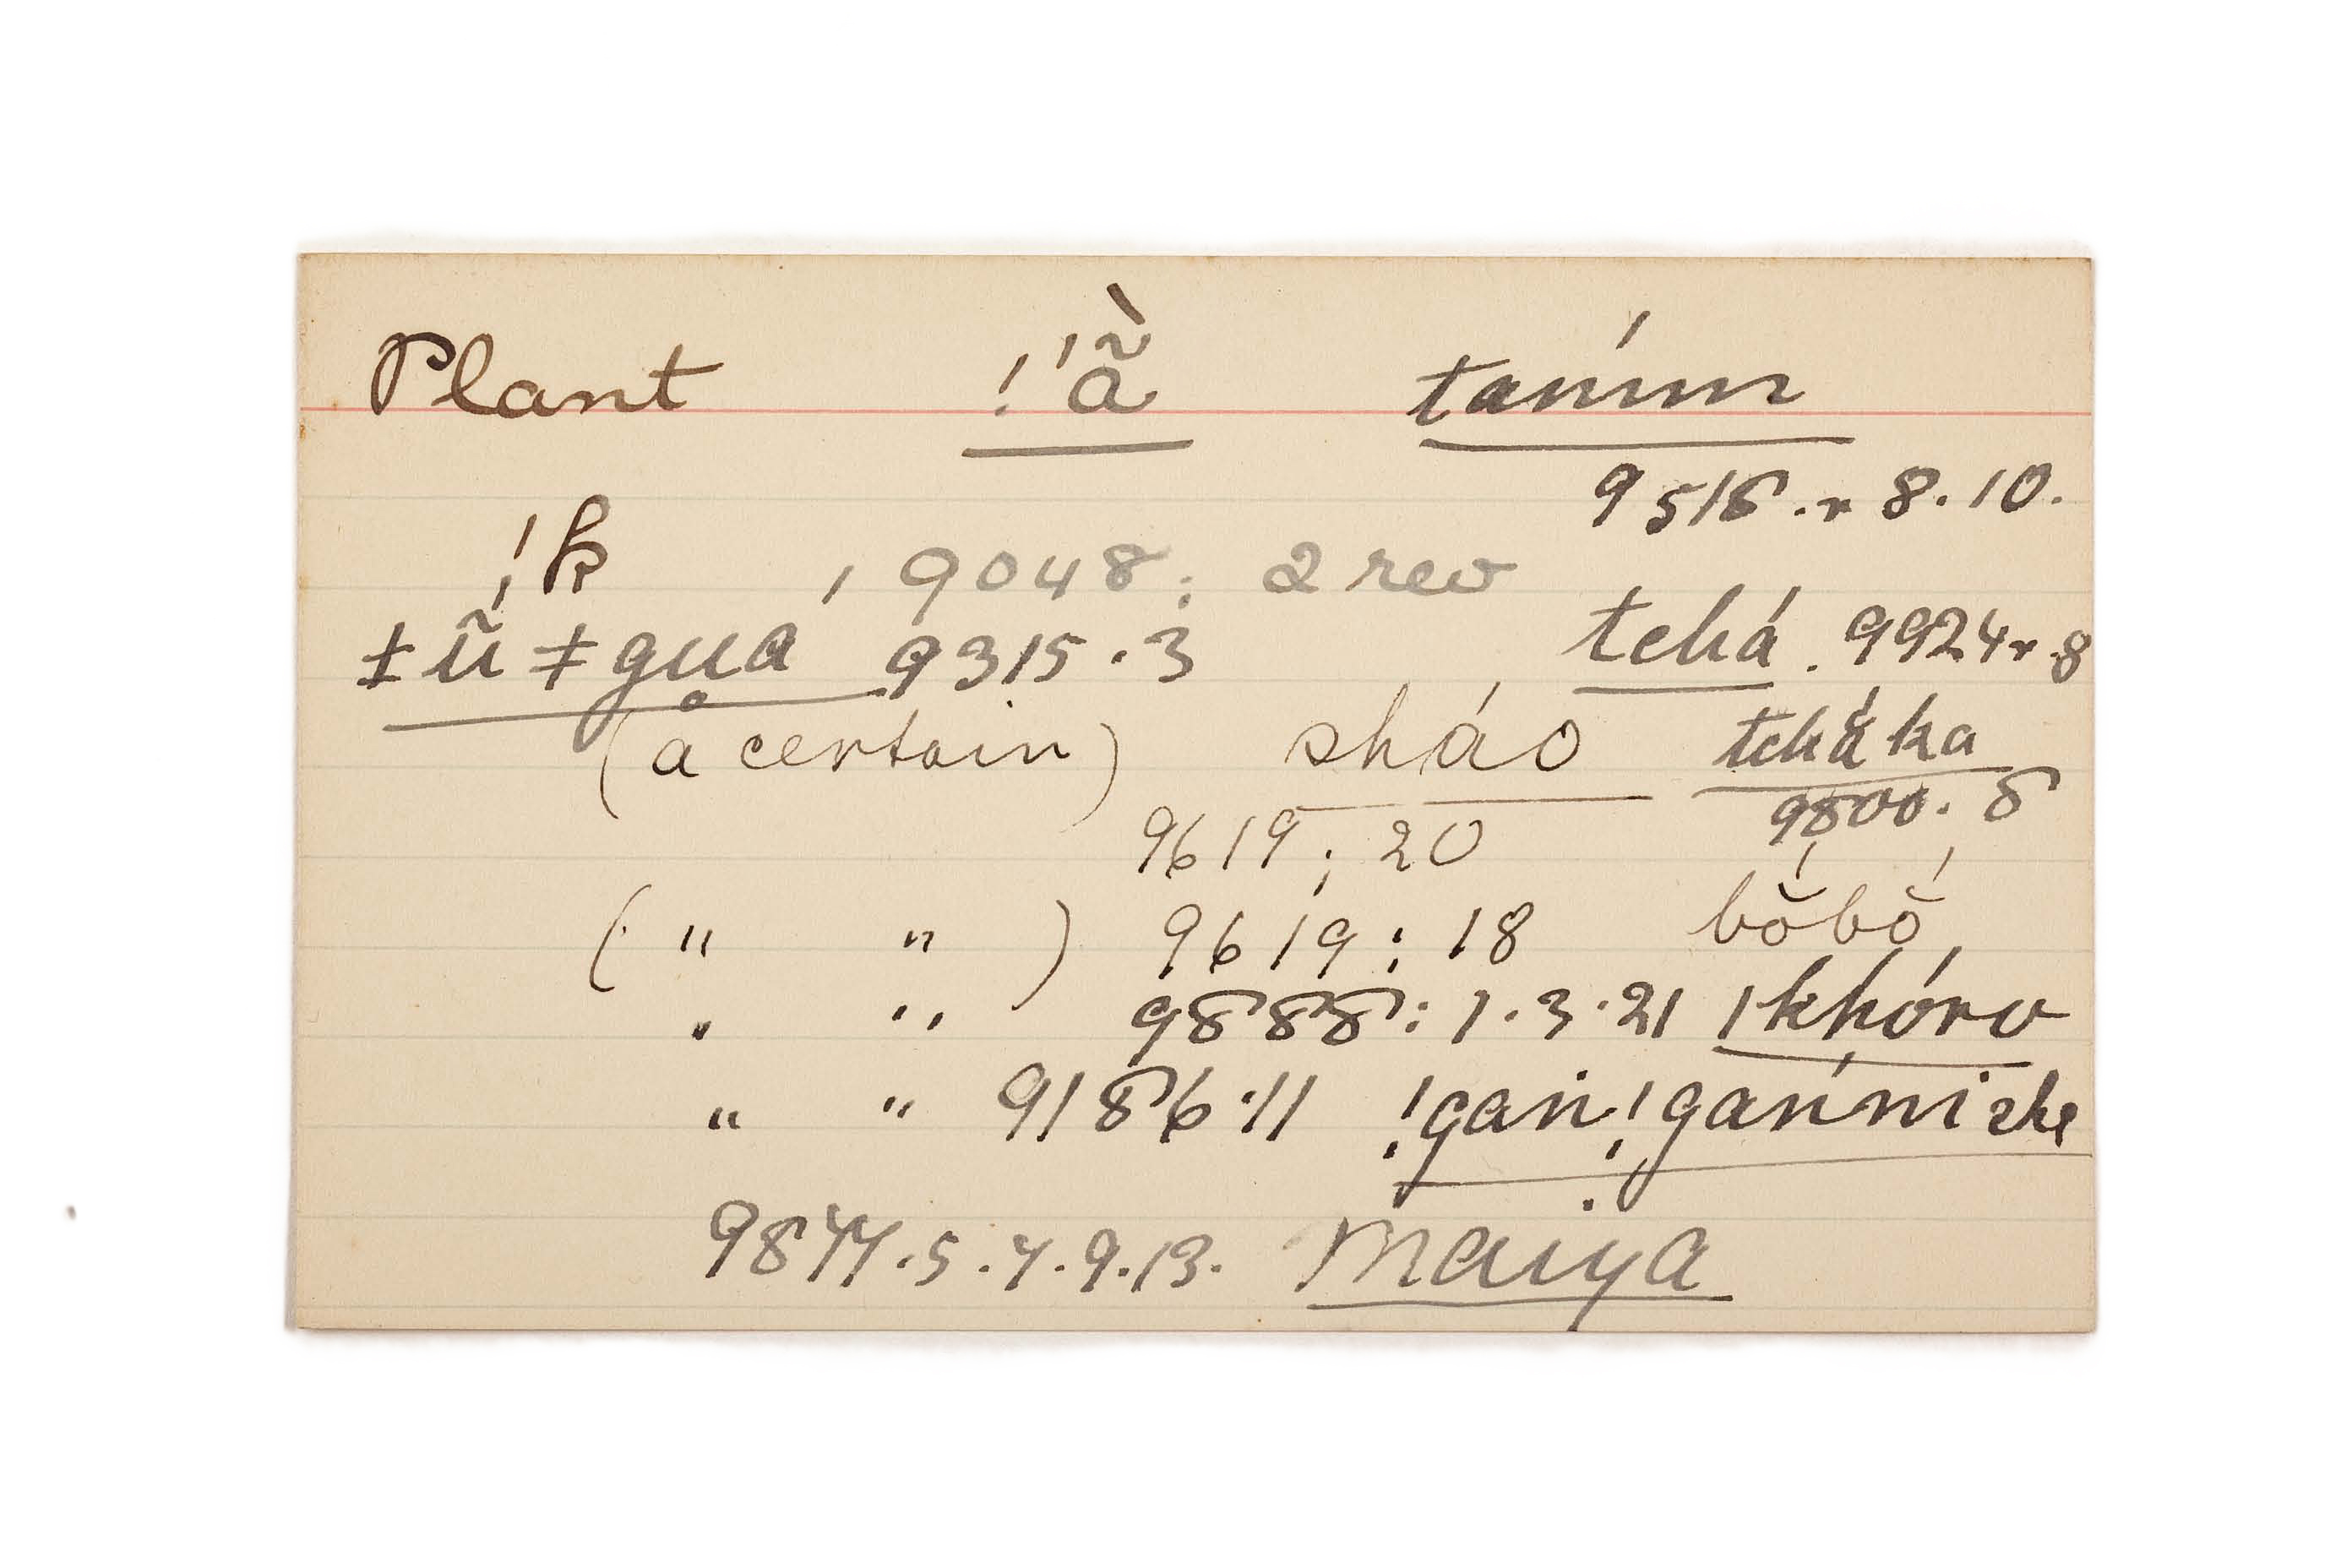 Plant !'ã̀ tanín
9516.r 8.10.
!k , 9048: 2 rev
ǂṹ ǂguá 9315.3 tchá. 9924r.8
(a certain) sháo tcháka
9619; 20 9800.8
( " " ) 9619: 18 bŏ́bŏ́
" " 9888: 1.3.21 ǀkhóro
" " 9186.11 !gań!gańnishe
9877.5.7.9.13. Maiya